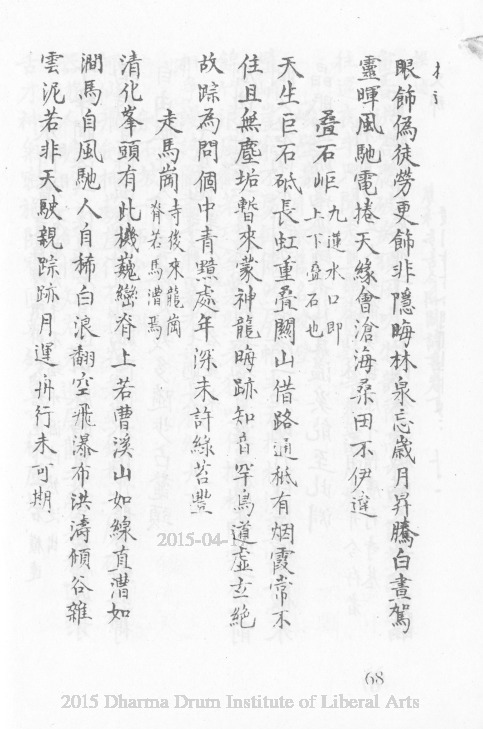 眼飾偽徒勞更飾非隱晦林泉忘歲月昇騰白晝駕
靈暉風馳電捲天緣會滄海桑田不伊違
疊石岠
九蓮水口即
上下叠石也
天生巨石砥長虹重叠關山借路通秪有烟霞常不
住且無塵垢暫來蒙神龍晦跡知音罕鳥道虛玄絕
故踪為問個中青黯處年深未許綠苔豐
走馬崗
寺後來龍崗
脊若馬漕焉
清化峯頭有此機巍巒脊上若曹溪山如練直漕如
澗馬自風馳人自稀白浪翻空飛瀑布洪濤傾谷雜
雲泥若非天駛親踪跡月運舟行未可期
68
2015-04-
2015 Dharma Drum Institute of Liberal Arts